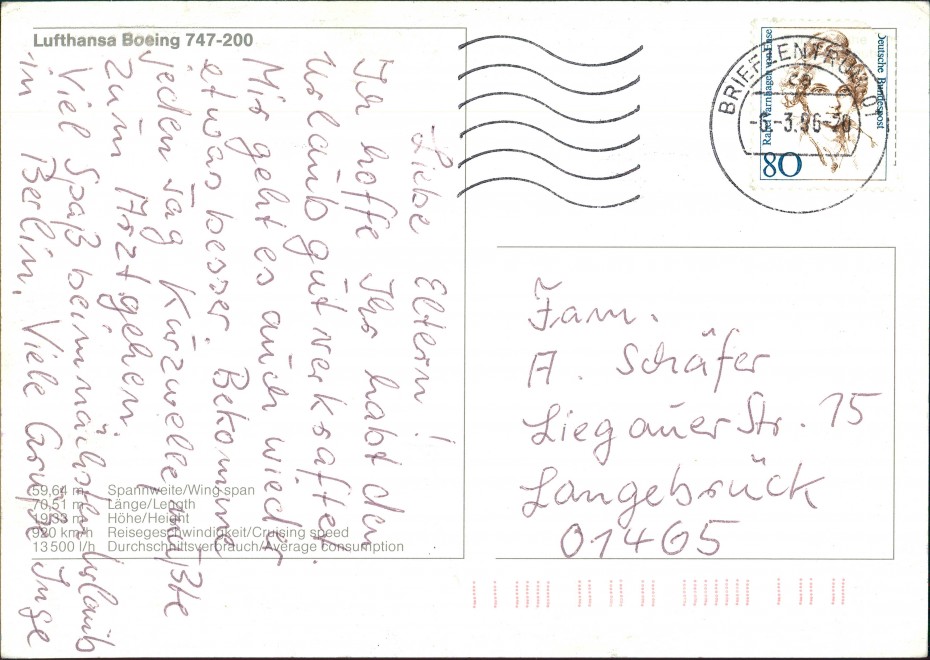 Lufthansa Boeing 747-200
Liebe Eltern!
Ich hoffe Ihr habt den
Urlaub gut verkraftet.
Mir geht es auch wieder
etwas besser. Bekomme
jeden Tag Kurzwelle, mußte
zum Arzt gehen.
Viel Spaß beim nächsten Urlaub
in Berlin. Viele Grüße Inge
59,64 m Spannweite/Wing span
70,51 m Länge/Length
19,33 m Höhe/Height
920 km/h Reisegeschwindigkeit/Cruising speed
13500 l/h Durchschnittsverbrauch/Average consumption
BRIEFZENTRUM 01
Rahel Varnhagen von Ense
Deutsche Bundespost
80
Fam.
A. Schäfer
Liegauer Str. 15
Langebrück
01465